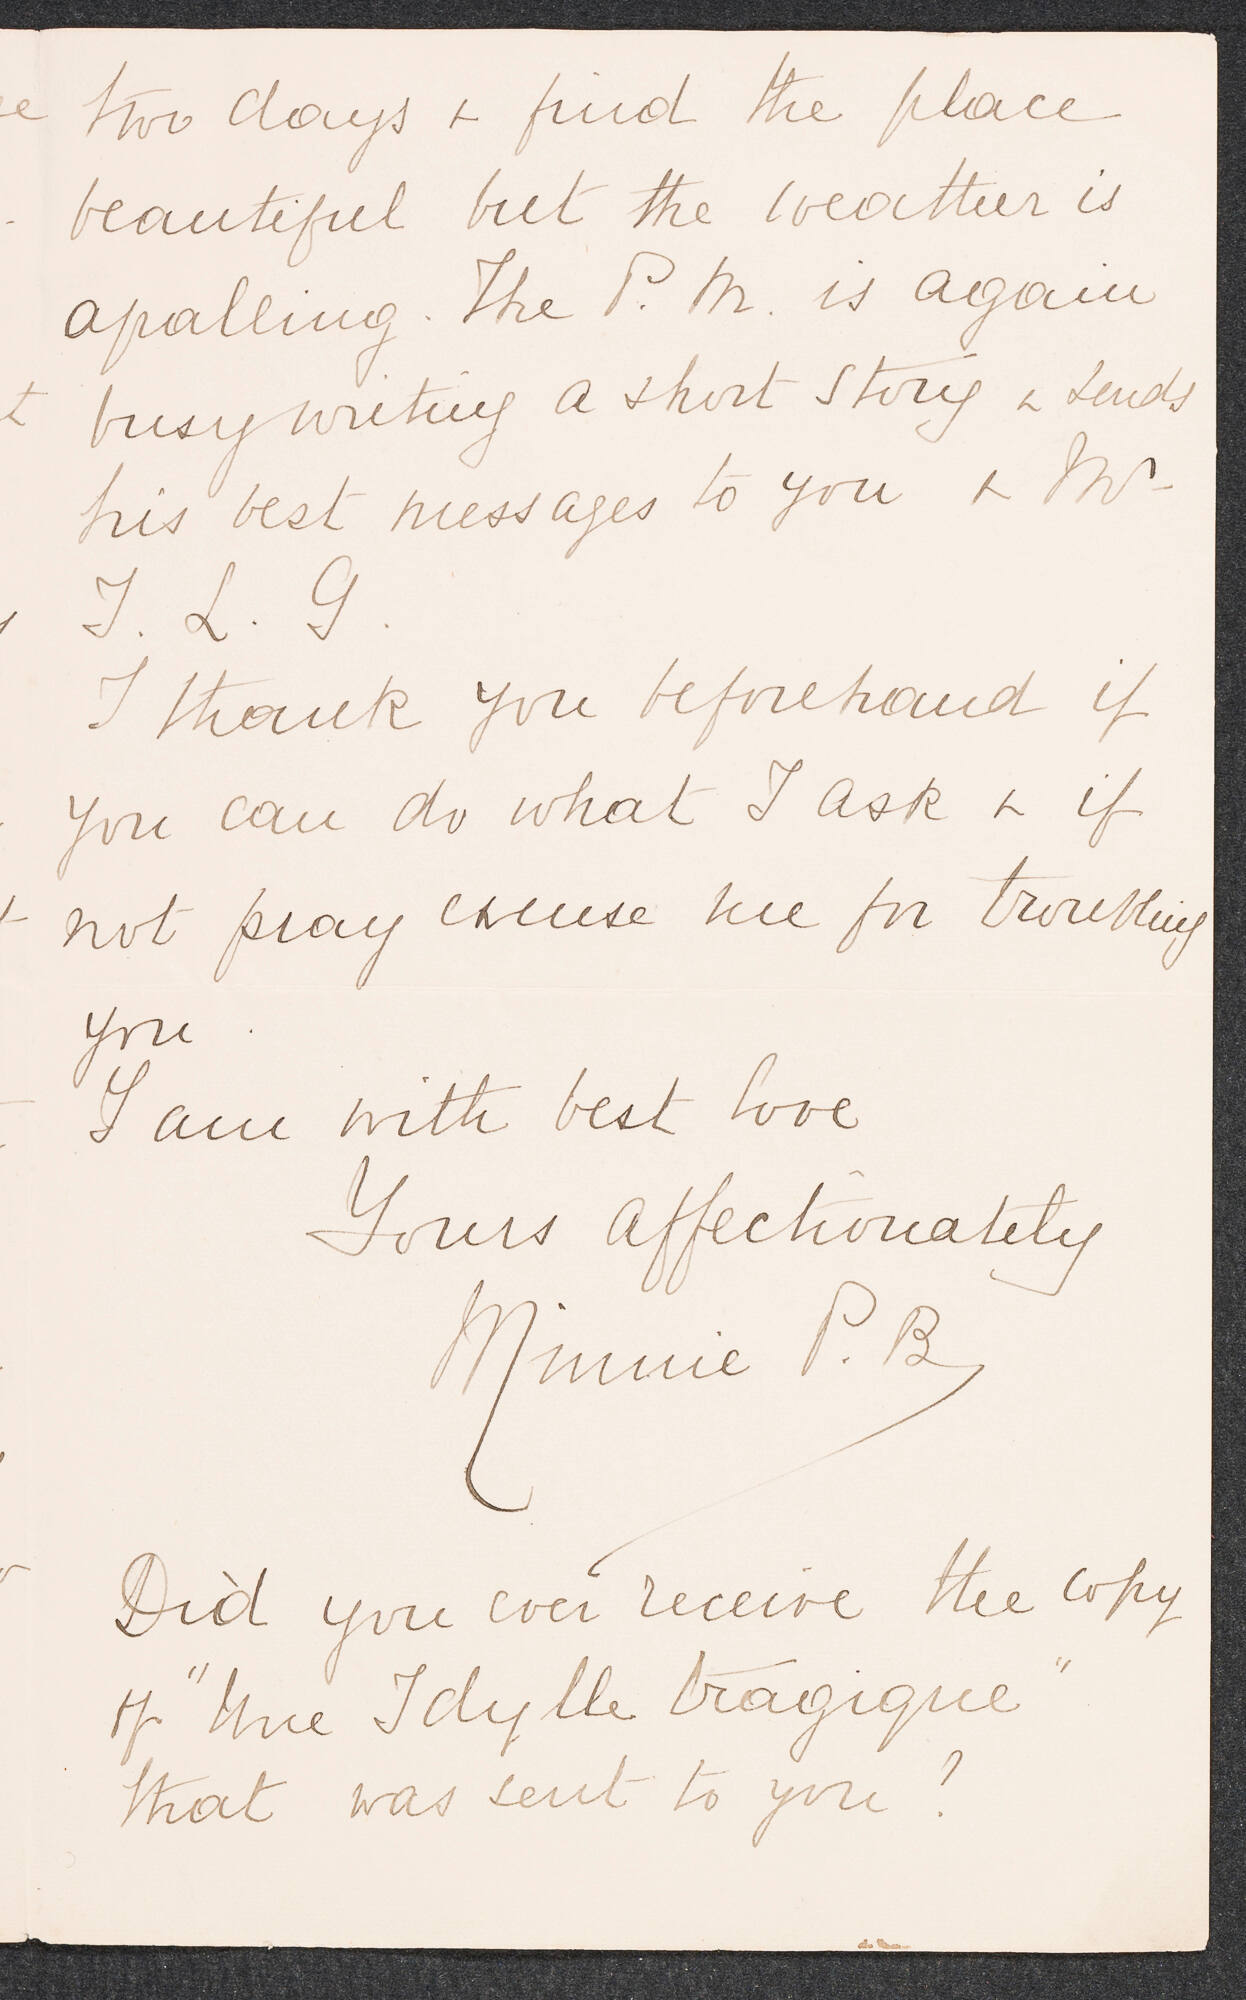 two days & find the place
beautiful but the weather is
apalling. The P. M. is again
busy writing a short story & sends
his best messages to you & Mr
I. L. G.
I thank you beforehand if
you can do what I ask & if
not pray excuse me for troubling
you.
I am with best love
Yours affectionately
Minnie P. B.
Did you ever receive the copy
of "Une Idylle tragique"
that was sent to you?